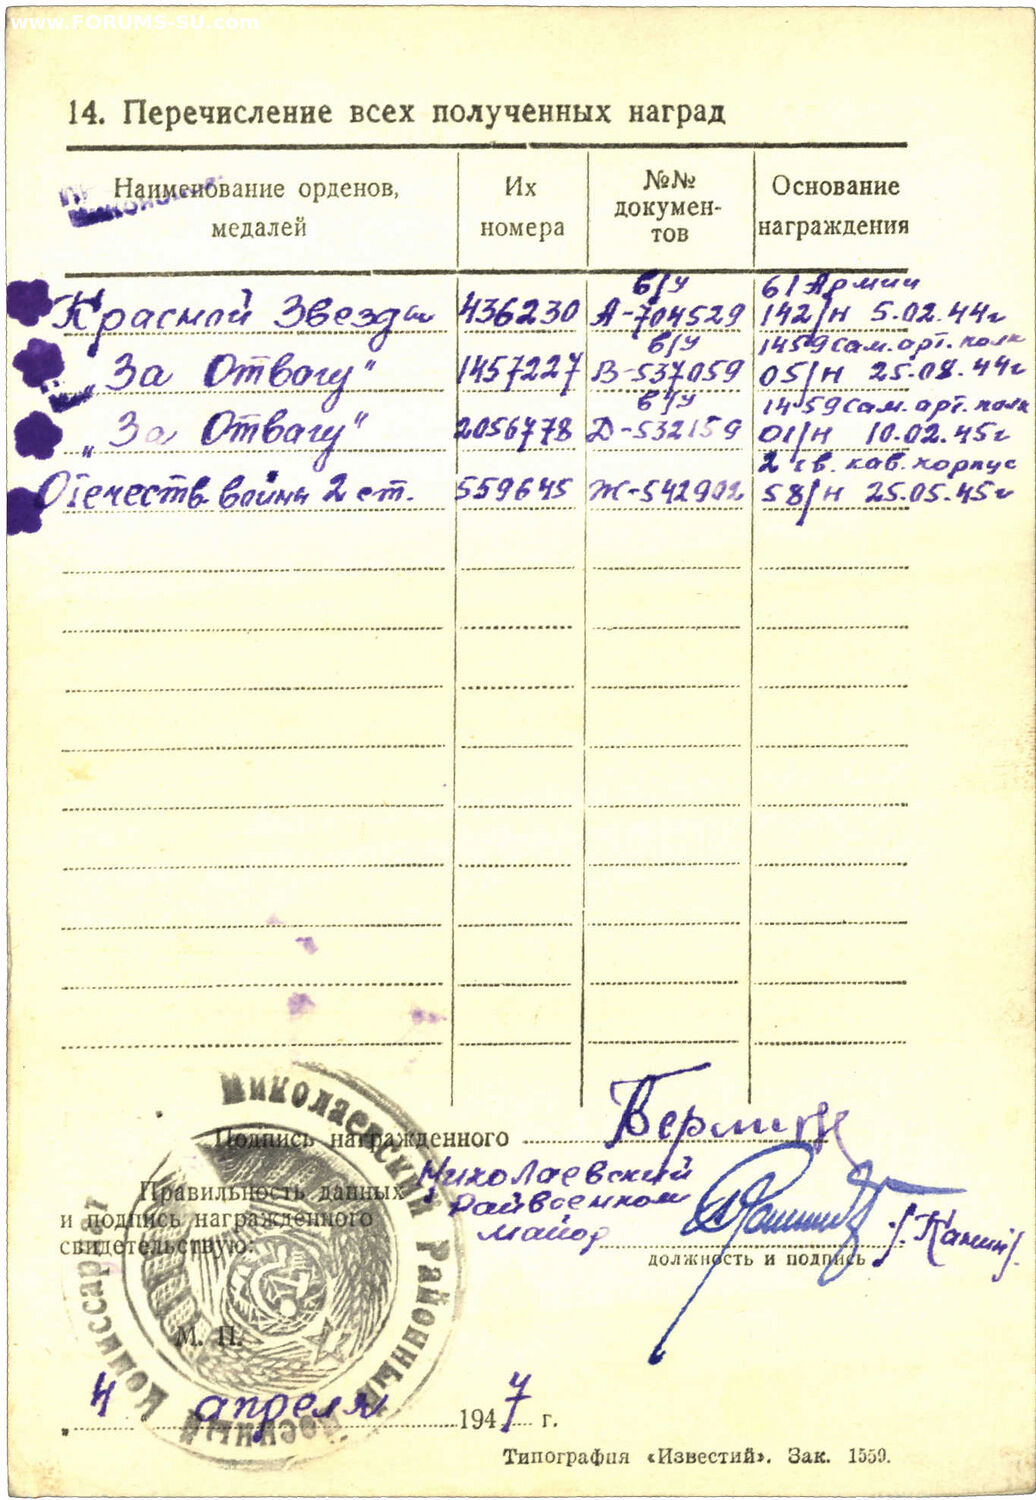 www.FORUMS-SU.com
14. Перечисление всех полученных наград
Наименование орденов, медалей
Их номера
№№ докумен-
тов
Основание награждения
Красной Звезды 436230 б/у А-704529 61 Армии 142/н 5.02.44г
„За Отвагу" 1457227 б/у В-537059 1459 сам. арт. полк 05/н 25.08.44г
„За Отвагу" 2056778 б/у Д-532159 1459 сам. арт. полк 01/н 10.02.45г
Отечеств. войны 2 ст. 559645 Ж-542902 2 гв. кав. корпус 58/н 25.05.45г
Подпись награжденного
Правильность данных
и подпись награжденного
свидетельствую:
Николаевский
Райвоенком
майор
должность и подпись
М. П.
Николаевский Районный Военный Комиссариат
4 апреля 1947 г.
Типография «Известий». Зак. 1559.